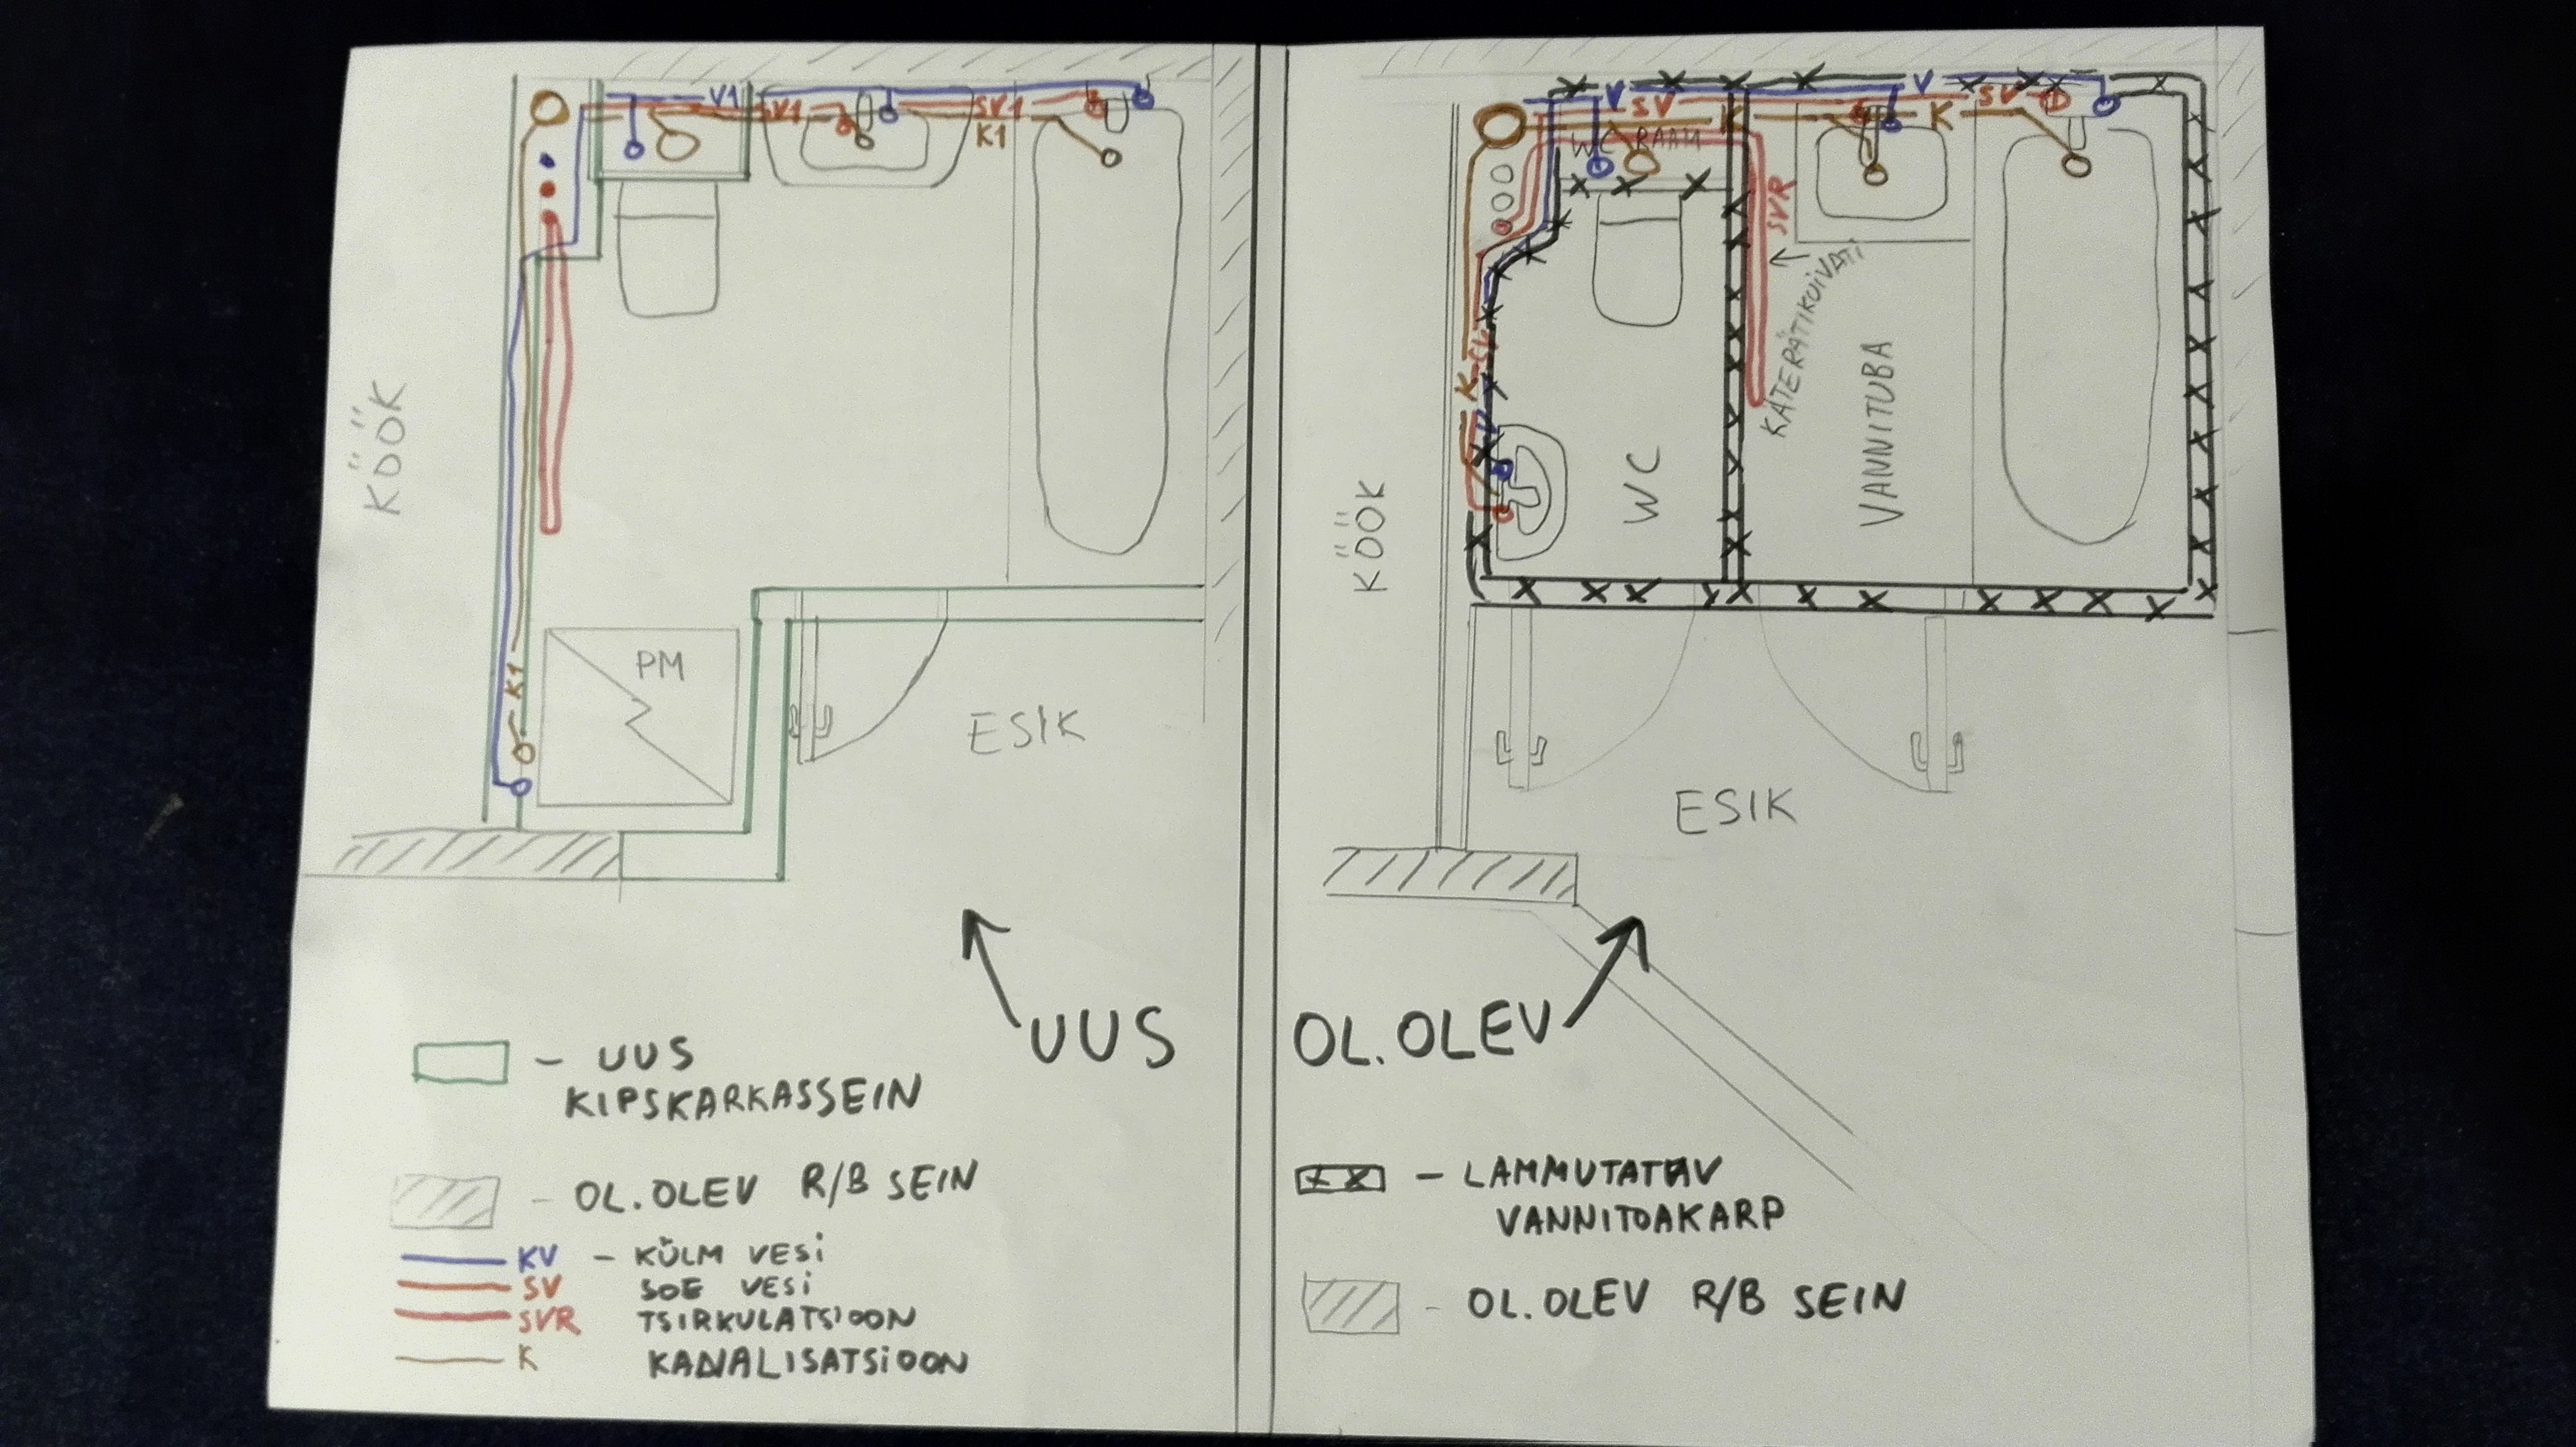 V1
SV1
SV1
K1
KÖÖK
K1
PM
ESIK
UUS
- UUS
KIPSKARKASSEIN
- OL.OLEV R/B SEIN
KV - KÜLM VESI
SV SOE VESI
SVR TSIRKULATSIOON
K KANALISATSIOON
V
V
SV
SV
K
K
WC RAAM
SVR
KÄTERÄTIKUIVATI
SV
K
V
WC
VANNITUBA
KÖÖK
ESIK
OL.OLEV
- LAMMUTATAV
VANNITOAKARP
- OL.OLEV R/B SEIN